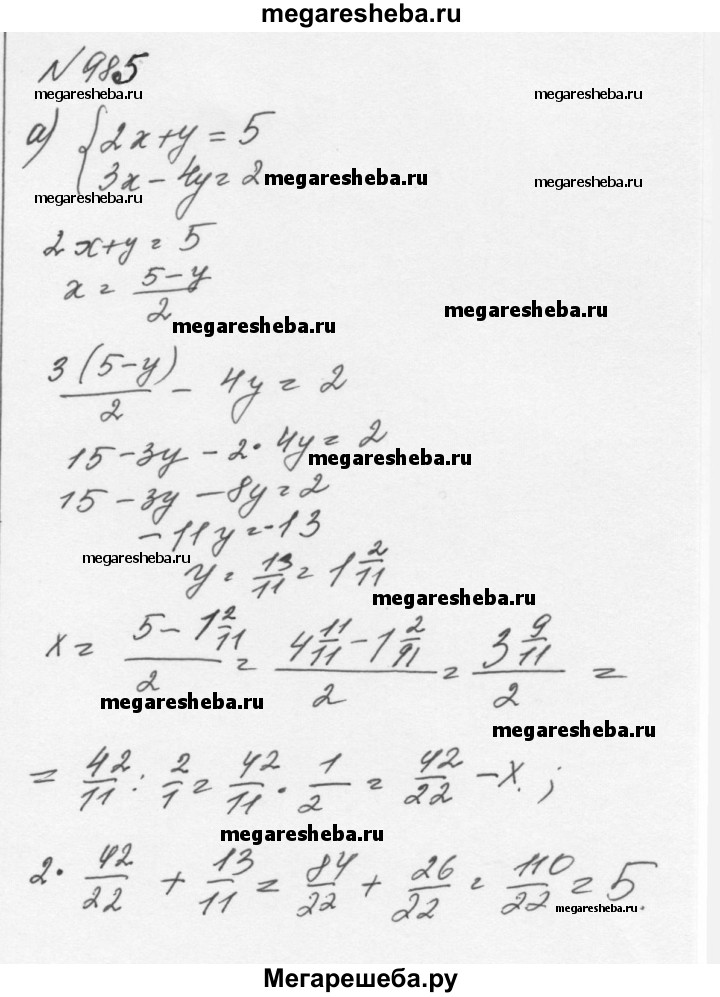 megaresheba.ru
N 985
megaresheba.ru megaresheba.ru
а) { 2x+y = 5
3x - 4y = 2 megaresheba.ru megaresheba.ru
megaresheba.ru
2x+y = 5
x = (5-y)/2
megaresheba.ru megaresheba.ru
3(5-y)/2 - 4y = 2
15-3y - 2·4y = 2
megaresheba.ru
15 - 3y - 8y = 2
-11y = -13
megaresheba.ru
y = 13/11 = 1 2/11
megaresheba.ru
x = (5 - 1 2/11)/2 = (4 11/11 - 1 2/11)/2 = (3 9/11)/2 =
megaresheba.ru
megaresheba.ru
= 42/11 : 2/1 = 42/11 · 1/2 = 42/22 - x. ;
megaresheba.ru
2· 42/22 + 13/11 = 84/22 + 26/22 = 110/22 = 5
megaresheba.ru
Мегарешеба.ру